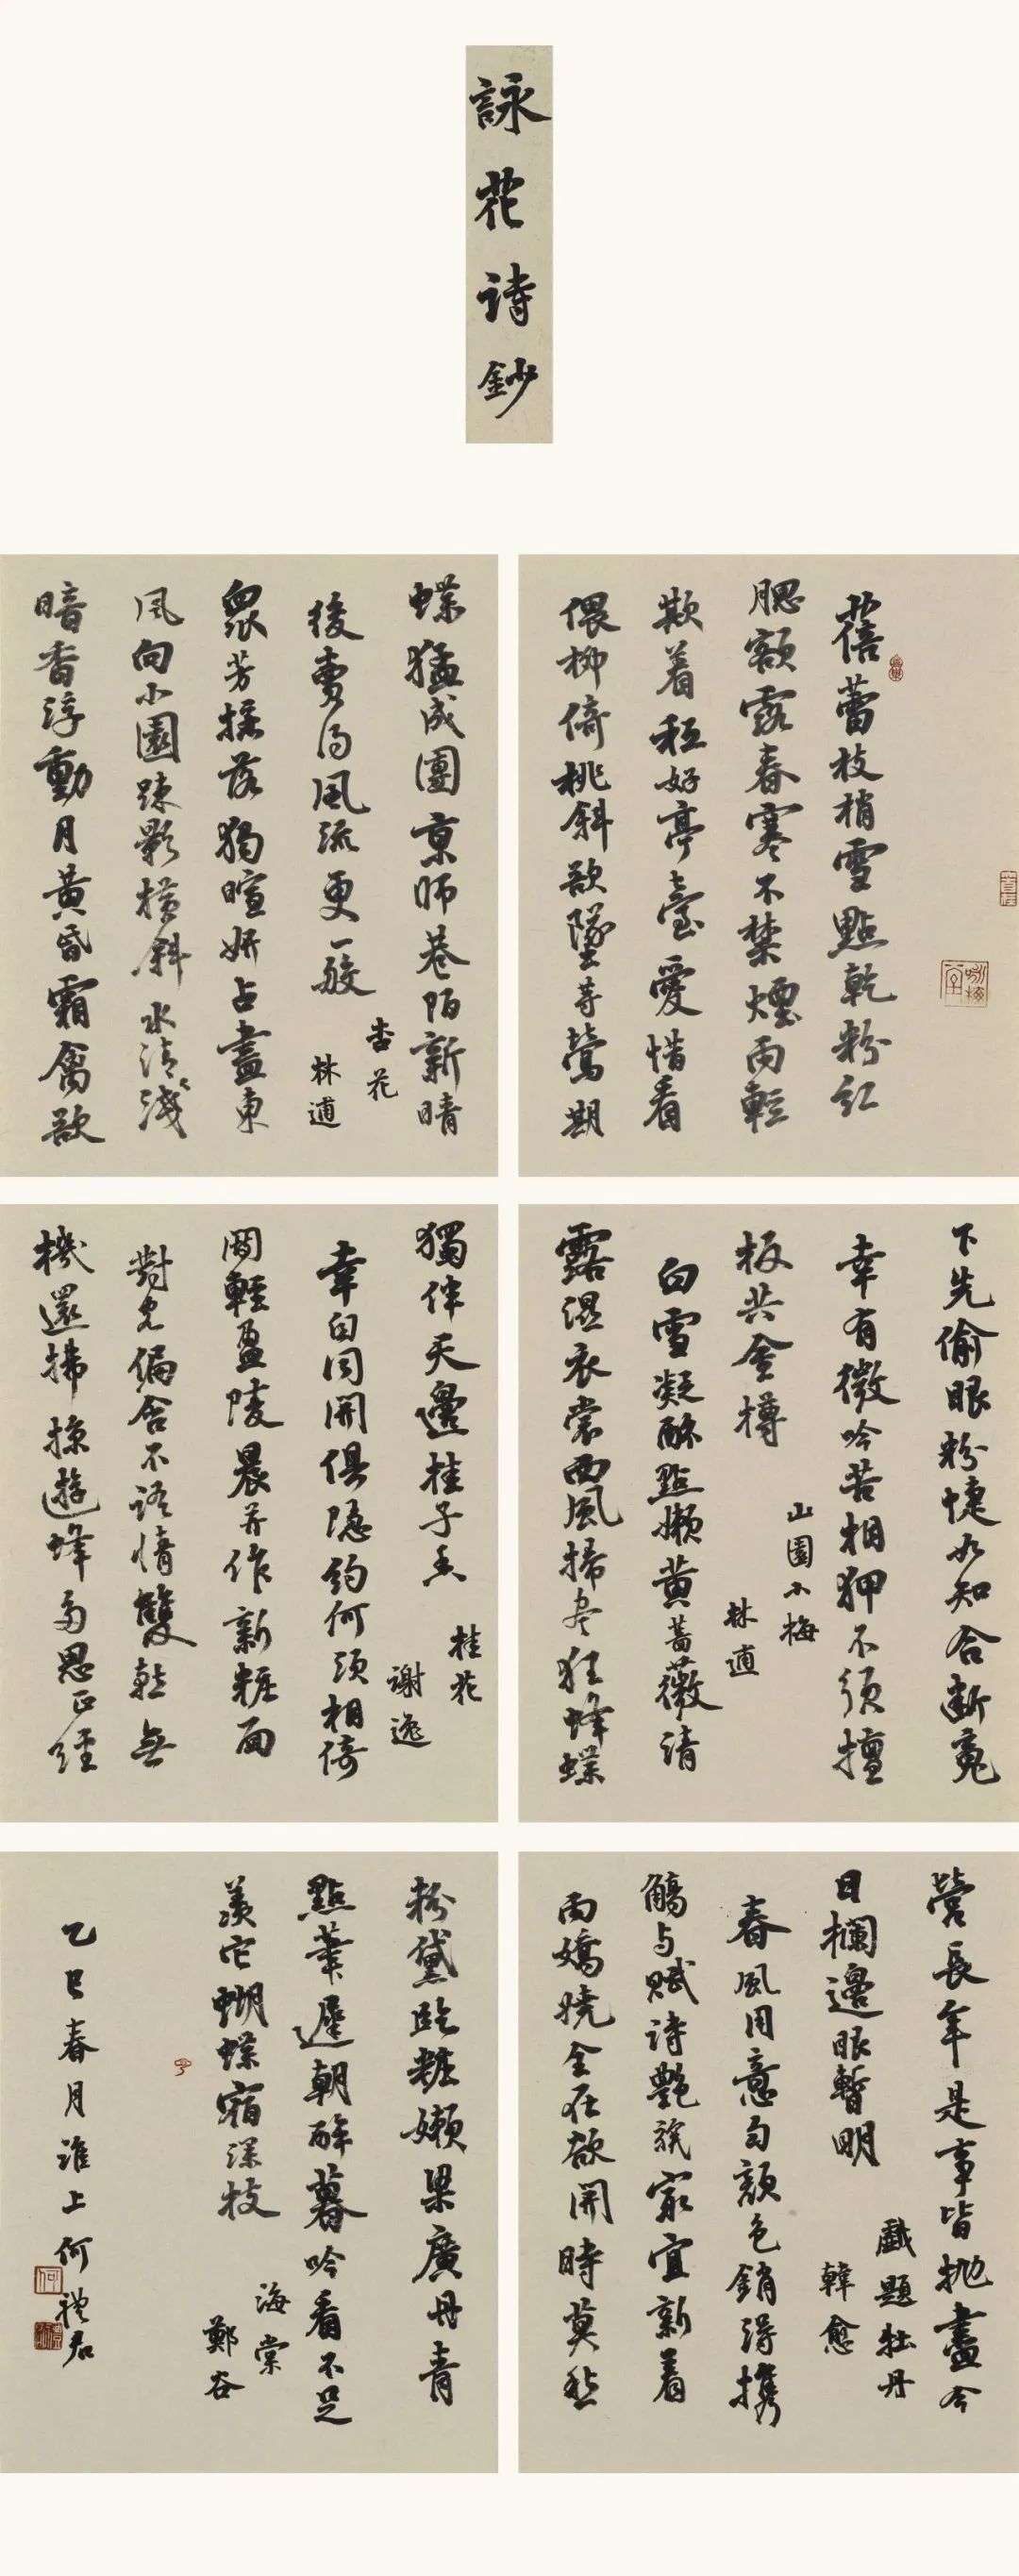 詠花诗鈔
蓓蕾枝梢雪點乾粉紅
腮額露春寒不禁煙雨輕
欺着秪好亭臺愛惜看
偎柳倚桃斜欲墜等鶯期
蝶猛成團京師巷陌新晴
後賣得風流更一般
杏花
林逋
眾芳搖落獨暄妍占盡東
風向小園踈影橫斜水清淺
暗香浮動月黃昏霜禽欲
下先偷眼粉蜨如知合斷魂
幸有微吟苦相狎不須檀
板共金樽
山園小梅
林逋
白雪凝酥點嬾黄薔薇清
露濕衣裳西風掃尽狂蜂蝶
獨伴天邊桂子香
桂花
謝逸
幸自同開俱隱約何須相倚
鬪輕盈陵晨并作新粧面
對客偏含不语情雙鷰無
機還拂掠遊蜂多思正經
營長年是事皆抛盡今
日欄邊眼暫明
戲題牡丹
韓愈
春風用意勻顏色銷得攜
觴与賦诗艷最宜新着
雨嬌嬈全在欲開時莫愁
粉黛臨粧嬾梁廣丹青
點筆遲朝醉暮吟看不足
羨它蝴蝶宿深枝
海棠
鄭谷
乙巳春月淮上何禮君
何